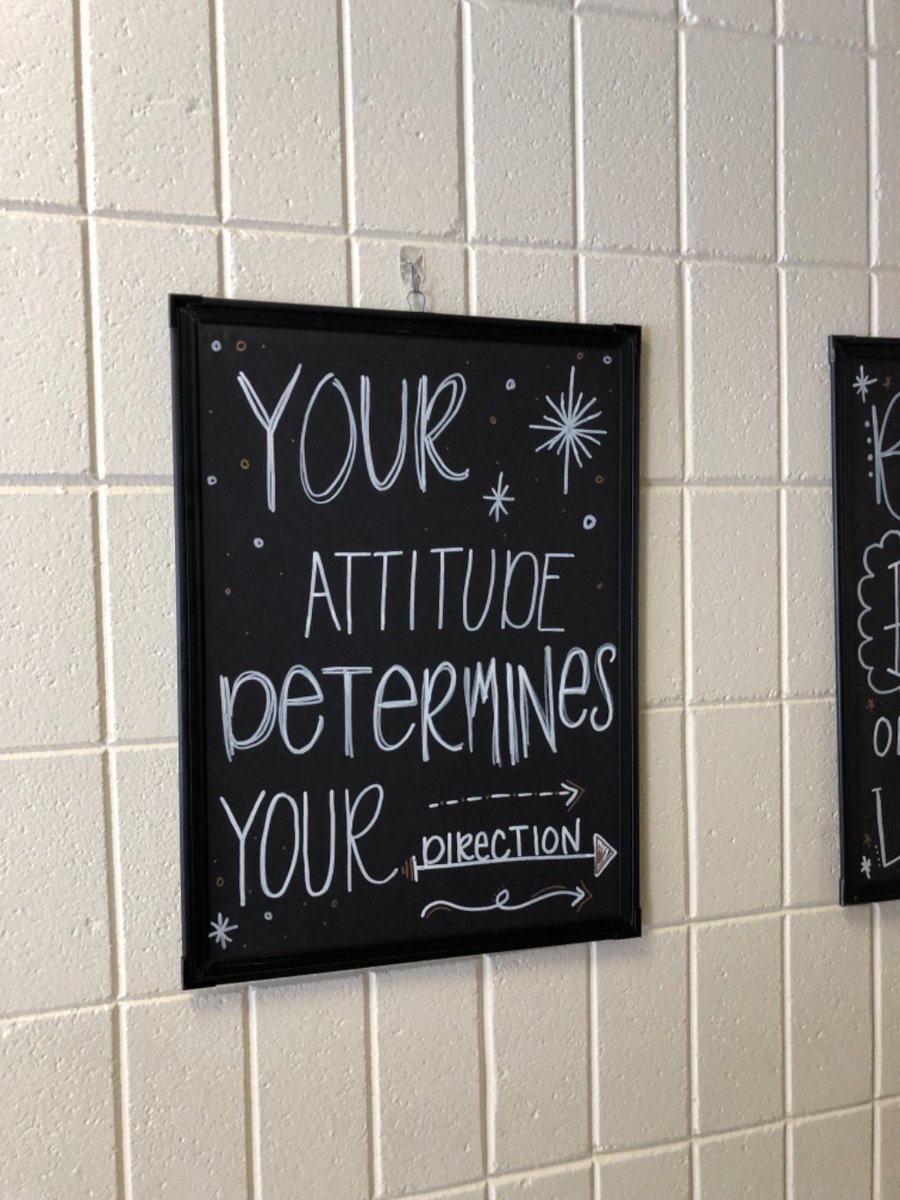 YOUR
ATTITUDE
DeTeRMINeS
YOUR
DIReCTION